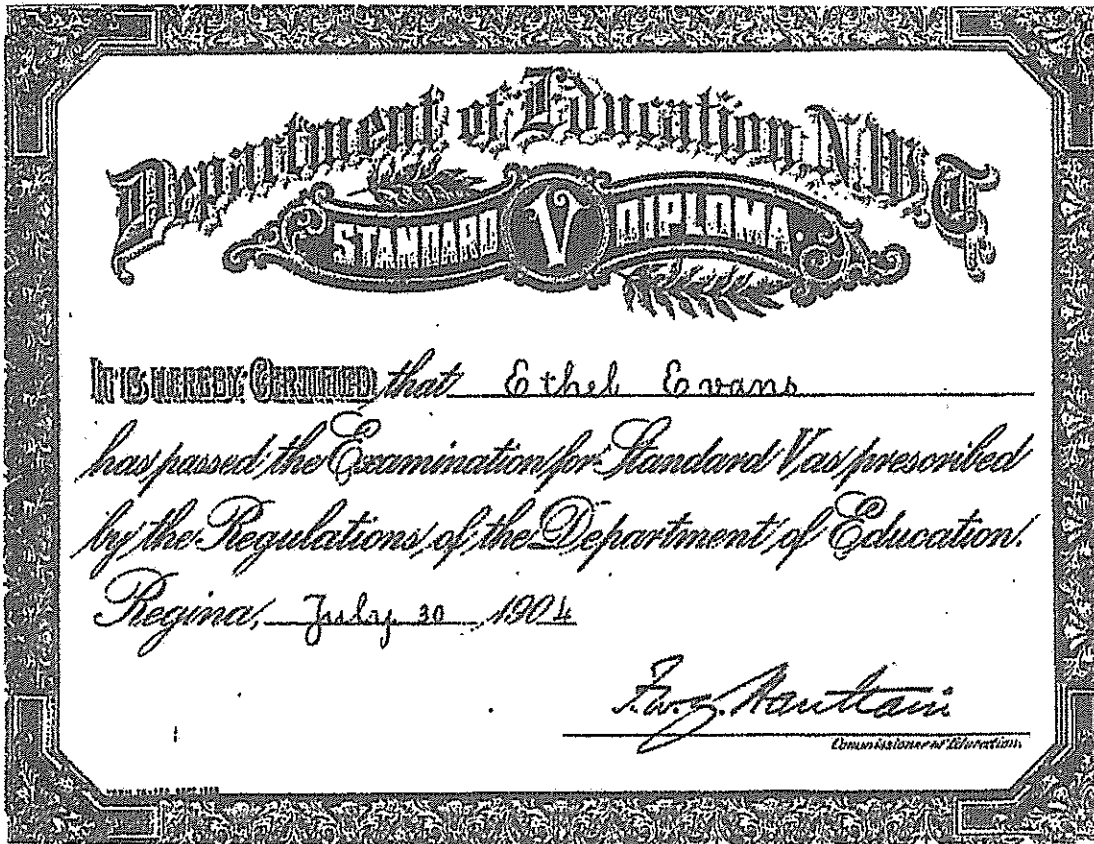 Department of Education, N.W.T.
STANDARD V DIPLOMA.
IT IS HEREBY CERTIFIED that Ethel Evans
has passed the Examination for Standard V as prescribed
by the Regulations of the Department of Education.
Regina, July 30 1904
F.W.G. Haultain
Commissioner of Education.